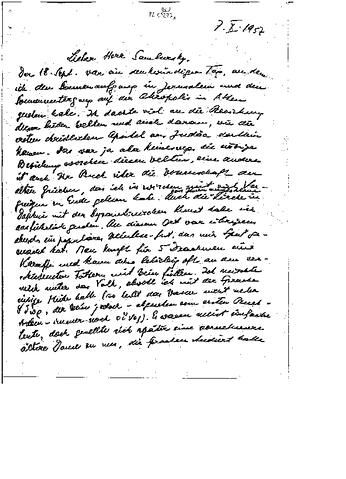 7. X. 1957
Lieber Herr Sambursky,
Der 18. Sept. war ein denkwürdiger Tag, an dem
ich den Sonnenaufgang in Jerusalem und den
Sonnenuntergang auf der Akropolis in Athen
gesehen habe. Ich dachte viel an die Beziehung
dieser beiden Welten und auch daran, wie die
ersten christlichen Apostel aus Judäa dorthin
kamen. Das war ja aber keineswegs die einzige
Beziehung zwischen diesen Welten, eine andere
ist auch Ihr Buch über die Wissenschaft der
alten Griechen, das ich inzwischen mit
zu Ende gelesen habe. Auch die Kirche in
Daphni mit der byzantinischen Kunst habe ich
ausführlich gesehen. An diesem Ort war übrigens
abends ein populäres Fest, das mir Spass ge-
macht hat. Man kauft für 5 Drachmen eine
Karaffe und kann diese beliebig oft an den ver-
schiedensten Fässern mit Wein füllen. Ich mischte
mich unter das Volk, obwohl ich mit der Sprache
einige Mühe hatte (so heisst das Wasser nicht mehr
ὕδωρ, der Wein jedoch
immer noch οἶνος). Es waren meist einfache
Leute, doch gesellte sich später eine vornehmere
ältere Dame zu uns, die studiert hatte